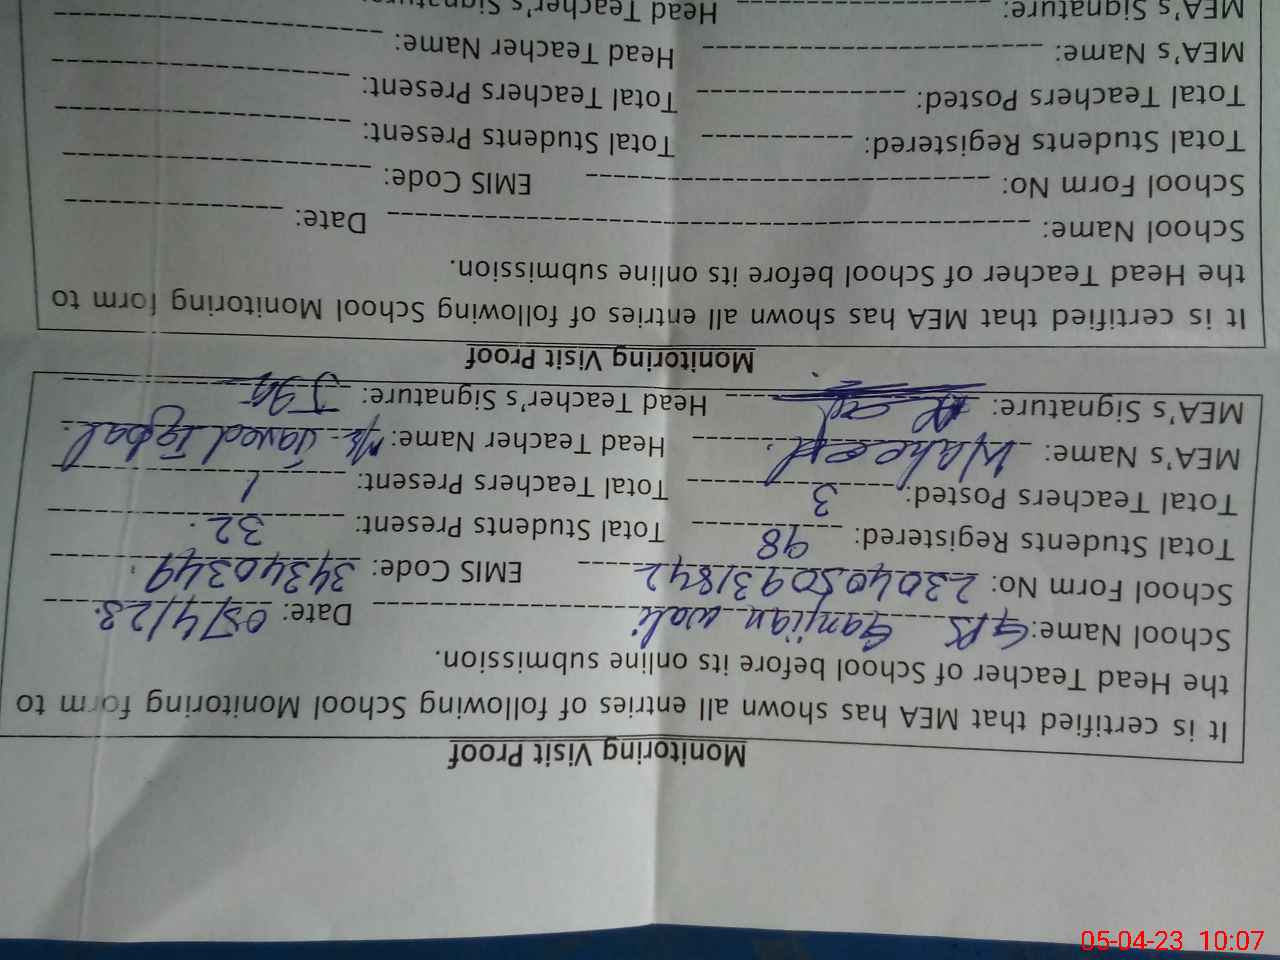 Monitoring Visit Proof
It is certified that MEA has shown all entries of following of School Monitoring School Monitoring form to
the Head Teacher of School before its online submission.
School Name: GPS Ganjian wali Date: 05/4/23.
School Form No: 2304050931842 EMIS Code: 34340349
Total Students Registered: 98 Total Students Present: 32
Total Teachers Posted: 3 Total Teachers Present: 1
MEA's Name: Waheed Head Teacher Name: Javed Iqbal
MEA's Signature: Head Teacher's Signature:
Monitoring Visit Proof
It is certified that MEA has shown all entries of following School Monitoring form to
the Head Teacher of School before its online submission.
School Name: Date:
School Form No: EMIS Code:
Total Students Registered: Total Students Present:
Total Teachers Posted: Total Teachers Present:
MEA's Name: Head Teacher Name:
MEA's Signature: Head Teacher's Signature:
05-04-23 10:07